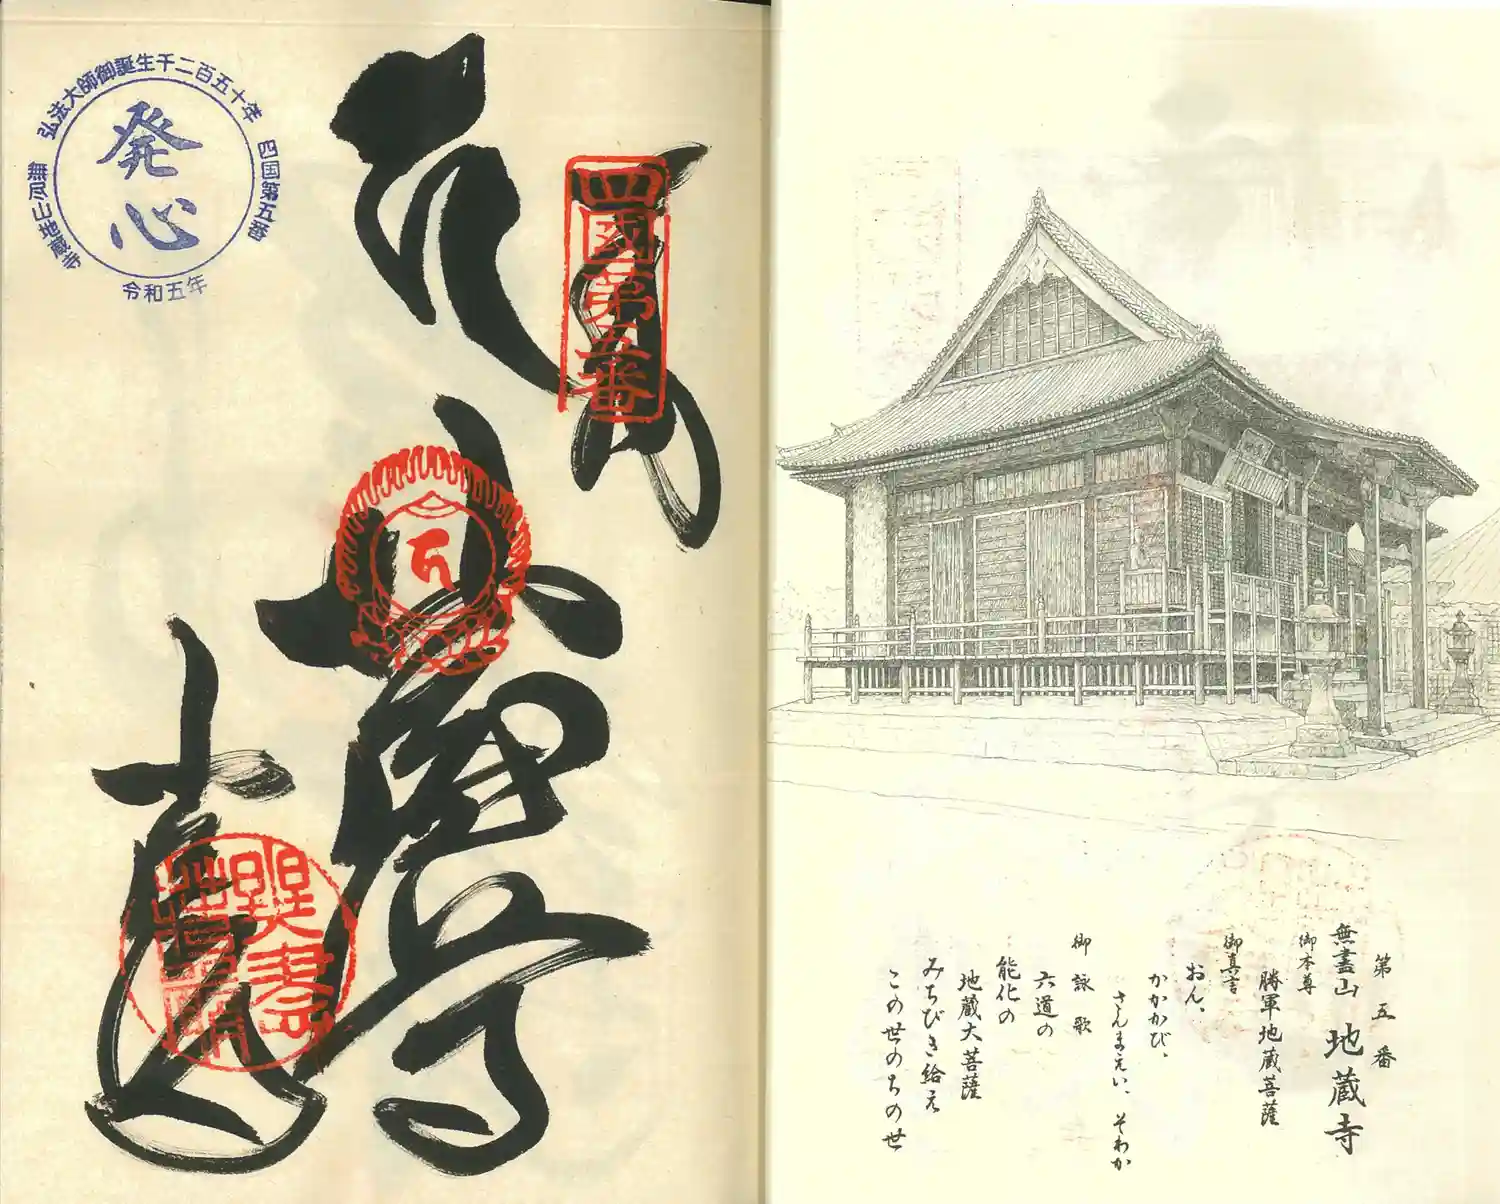 弘法大師御誕生千二百五十年
四国第五番
無尽山地蔵寺
令和五年
発心
四國第五番
奉
第五番
無盡山 地蔵寺
御本尊
勝軍地蔵菩薩
御真言
おん、
かかかび、
さんまえい、そわか
御詠歌
六道の
能化の
地蔵大菩薩
みちびき給え
この世のちの世